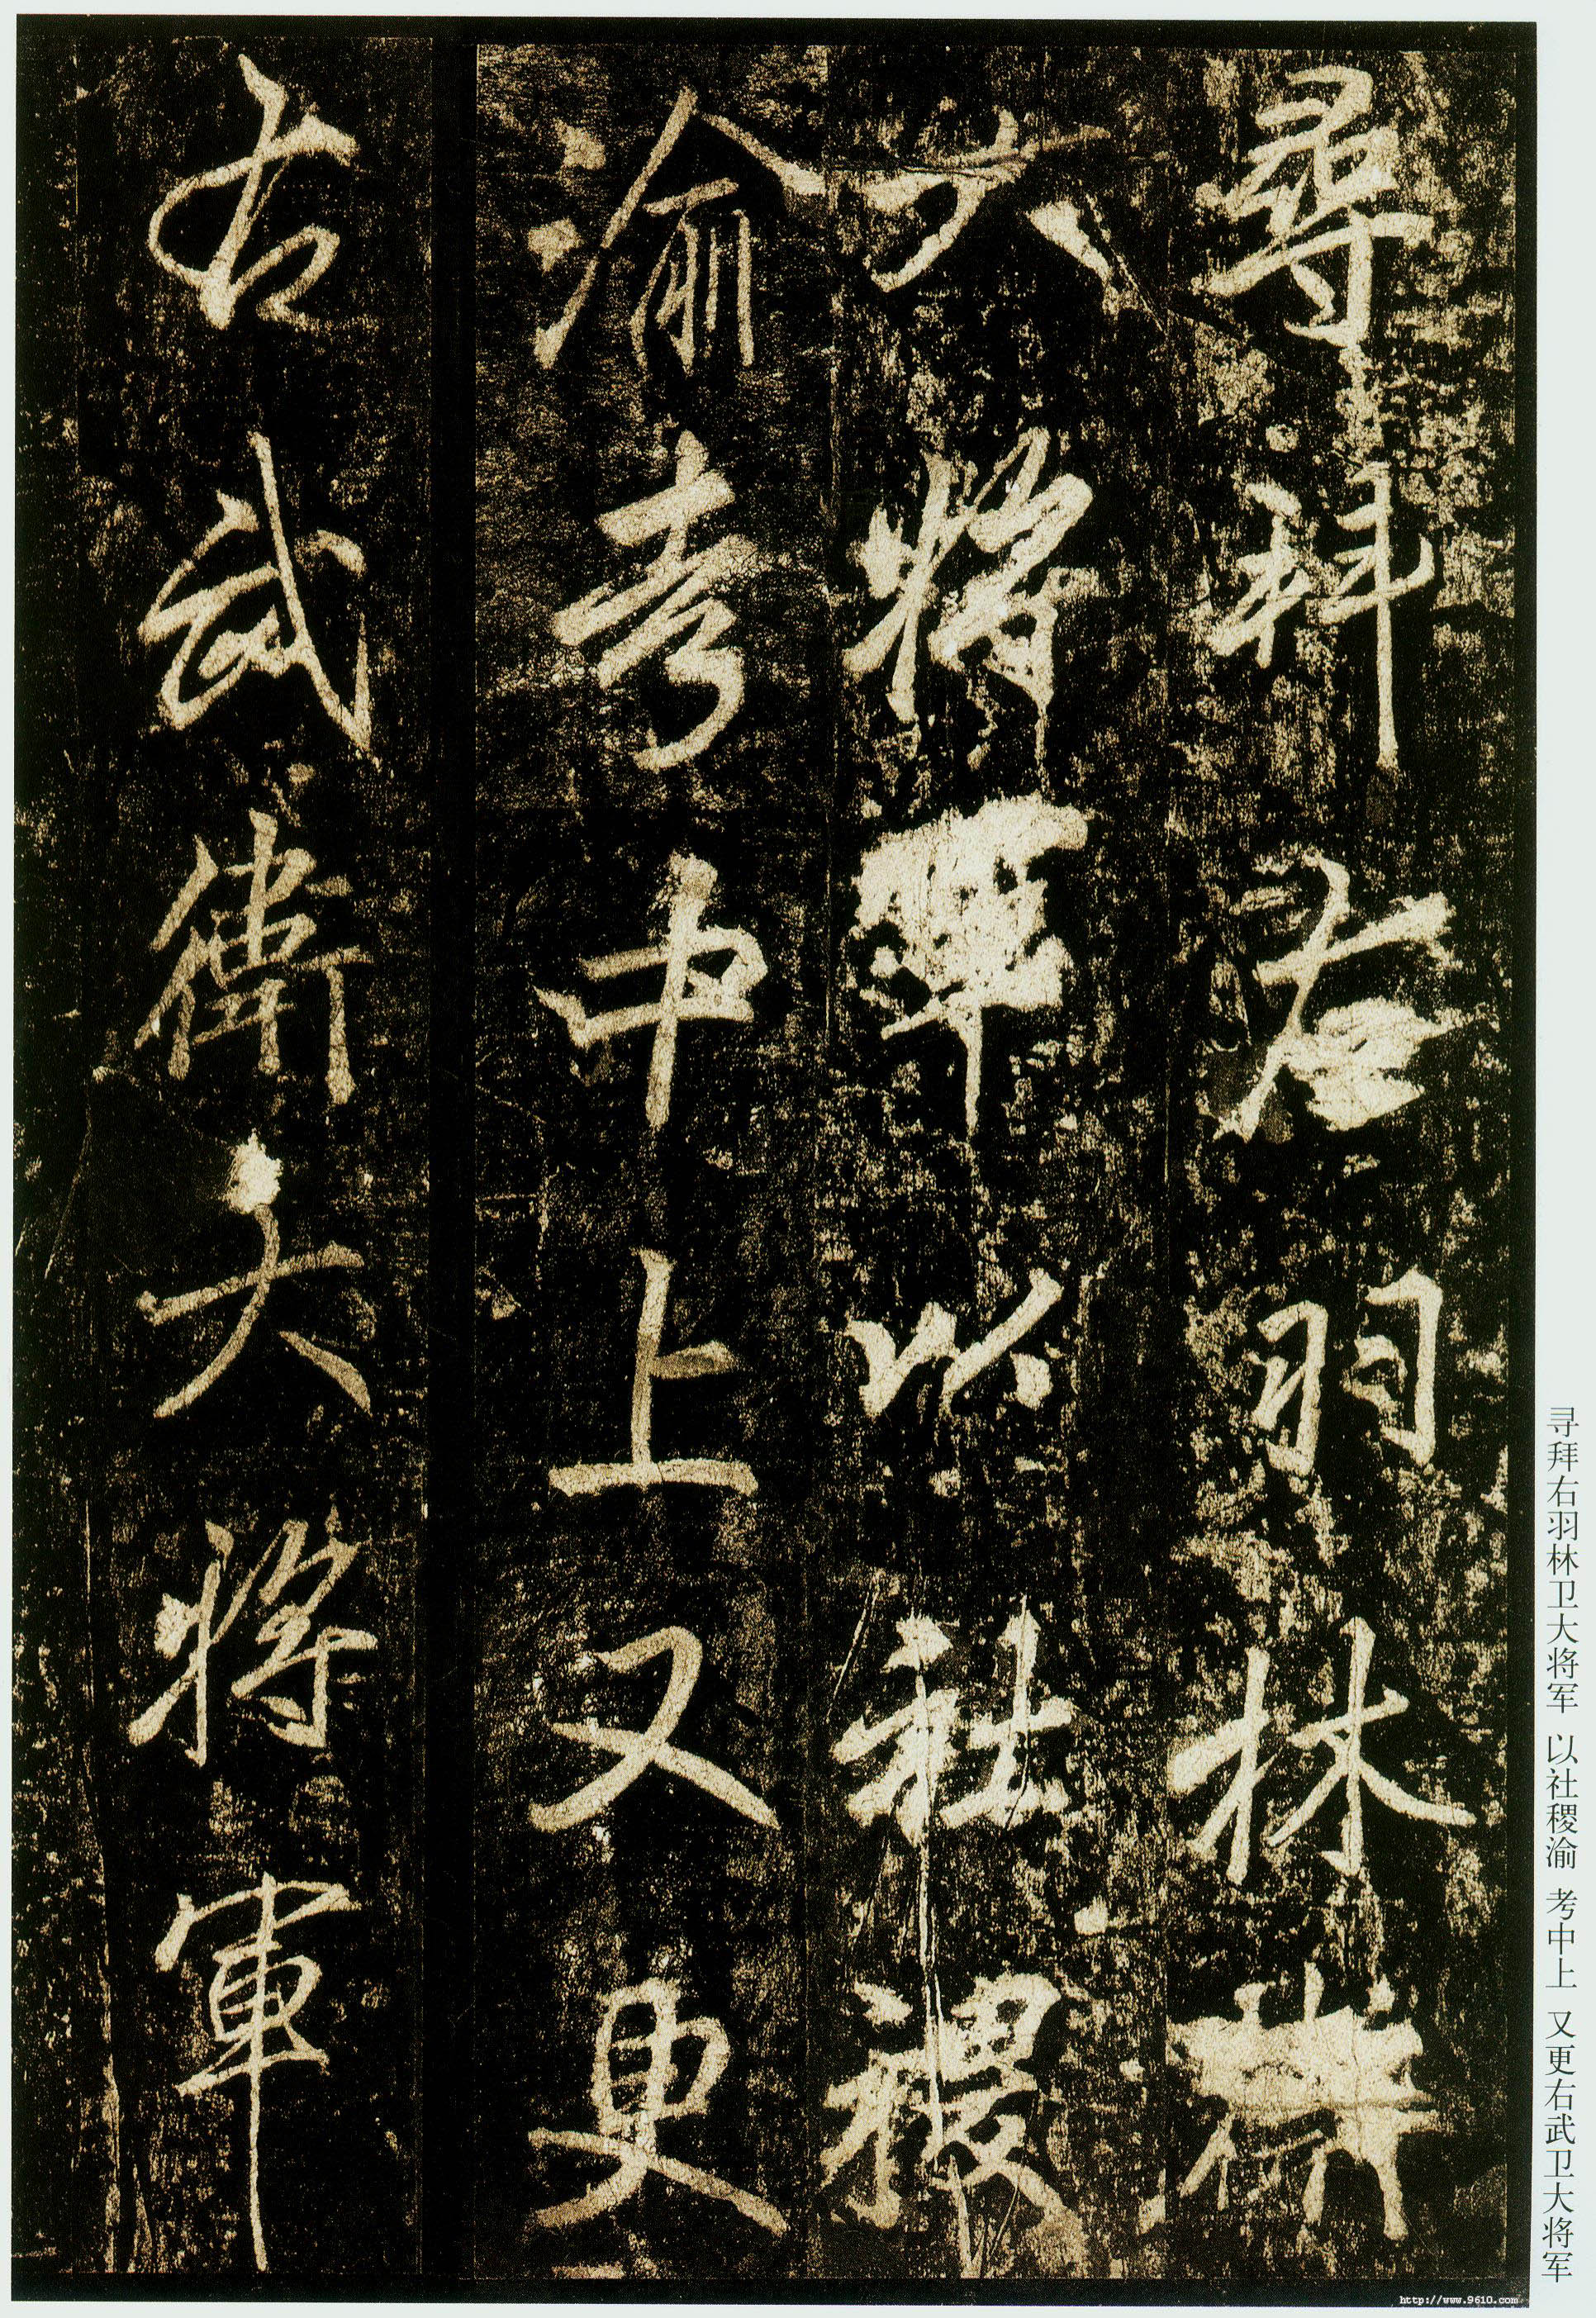 尋拜右羽林衛
大將軍以社稷
渝考中上又更
右武衛大將軍
寻拜右羽林卫大将军 以社稷渝 考中上 又更右武卫大将军
http://www.9610.com